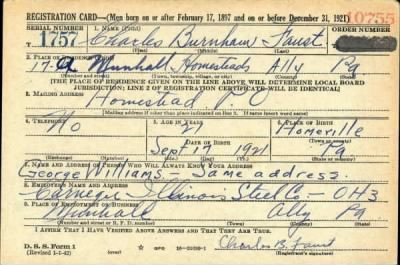 REGISTRATION CARD—(Men born on or after February 17, 1897 and on or before December 31, 1921)
SERIAL NUMBER 1. NAME (Print) ORDER NUMBER
1757 Charles Burnham Faust 10755
2. PLACE OF RESIDENCE (Print)
17- Munhall, Homestead Ally Pa
(Number and street) (Town, township, village, or city) (County) (State)
[THE PLACE OF RESIDENCE GIVEN ON THE LINE ABOVE WILL DETERMINE LOCAL BOARD
JURISDICTION; LINE 2 OF REGISTRATION CERTIFICATE WILL BE IDENTICAL]
3. MAILING ADDRESS
Homestead P.O
[Mailing address if other than place indicated on line 2. If same insert word same]
4. TELEPHONE 5. AGE IN YEARS 6. PLACE OF BIRTH
No 21 Homeville
DATE OF BIRTH
Sept 17 1921 Pa
(Exchange) (Number) (Mo.) (Day) (Yr.) (State or country)
7. NAME AND ADDRESS OF PERSON WHO WILL ALWAYS KNOW YOUR ADDRESS
George Williams - Same address.
8. EMPLOYER'S NAME AND ADDRESS
Carnegie Illinois Steel Co. - OH3
9. PLACE OF EMPLOYMENT OR BUSINESS
Munhall Ally Pa
(Number and street or R. F. D. number) (Town) (County) (State)
I AFFIRM THAT I HAVE VERIFIED ABOVE ANSWERS AND THAT THEY ARE TRUE.
D. S. S. Form 1
(Revised 1-1-42) GPO Charles B. Faust
(Registrant's signature)